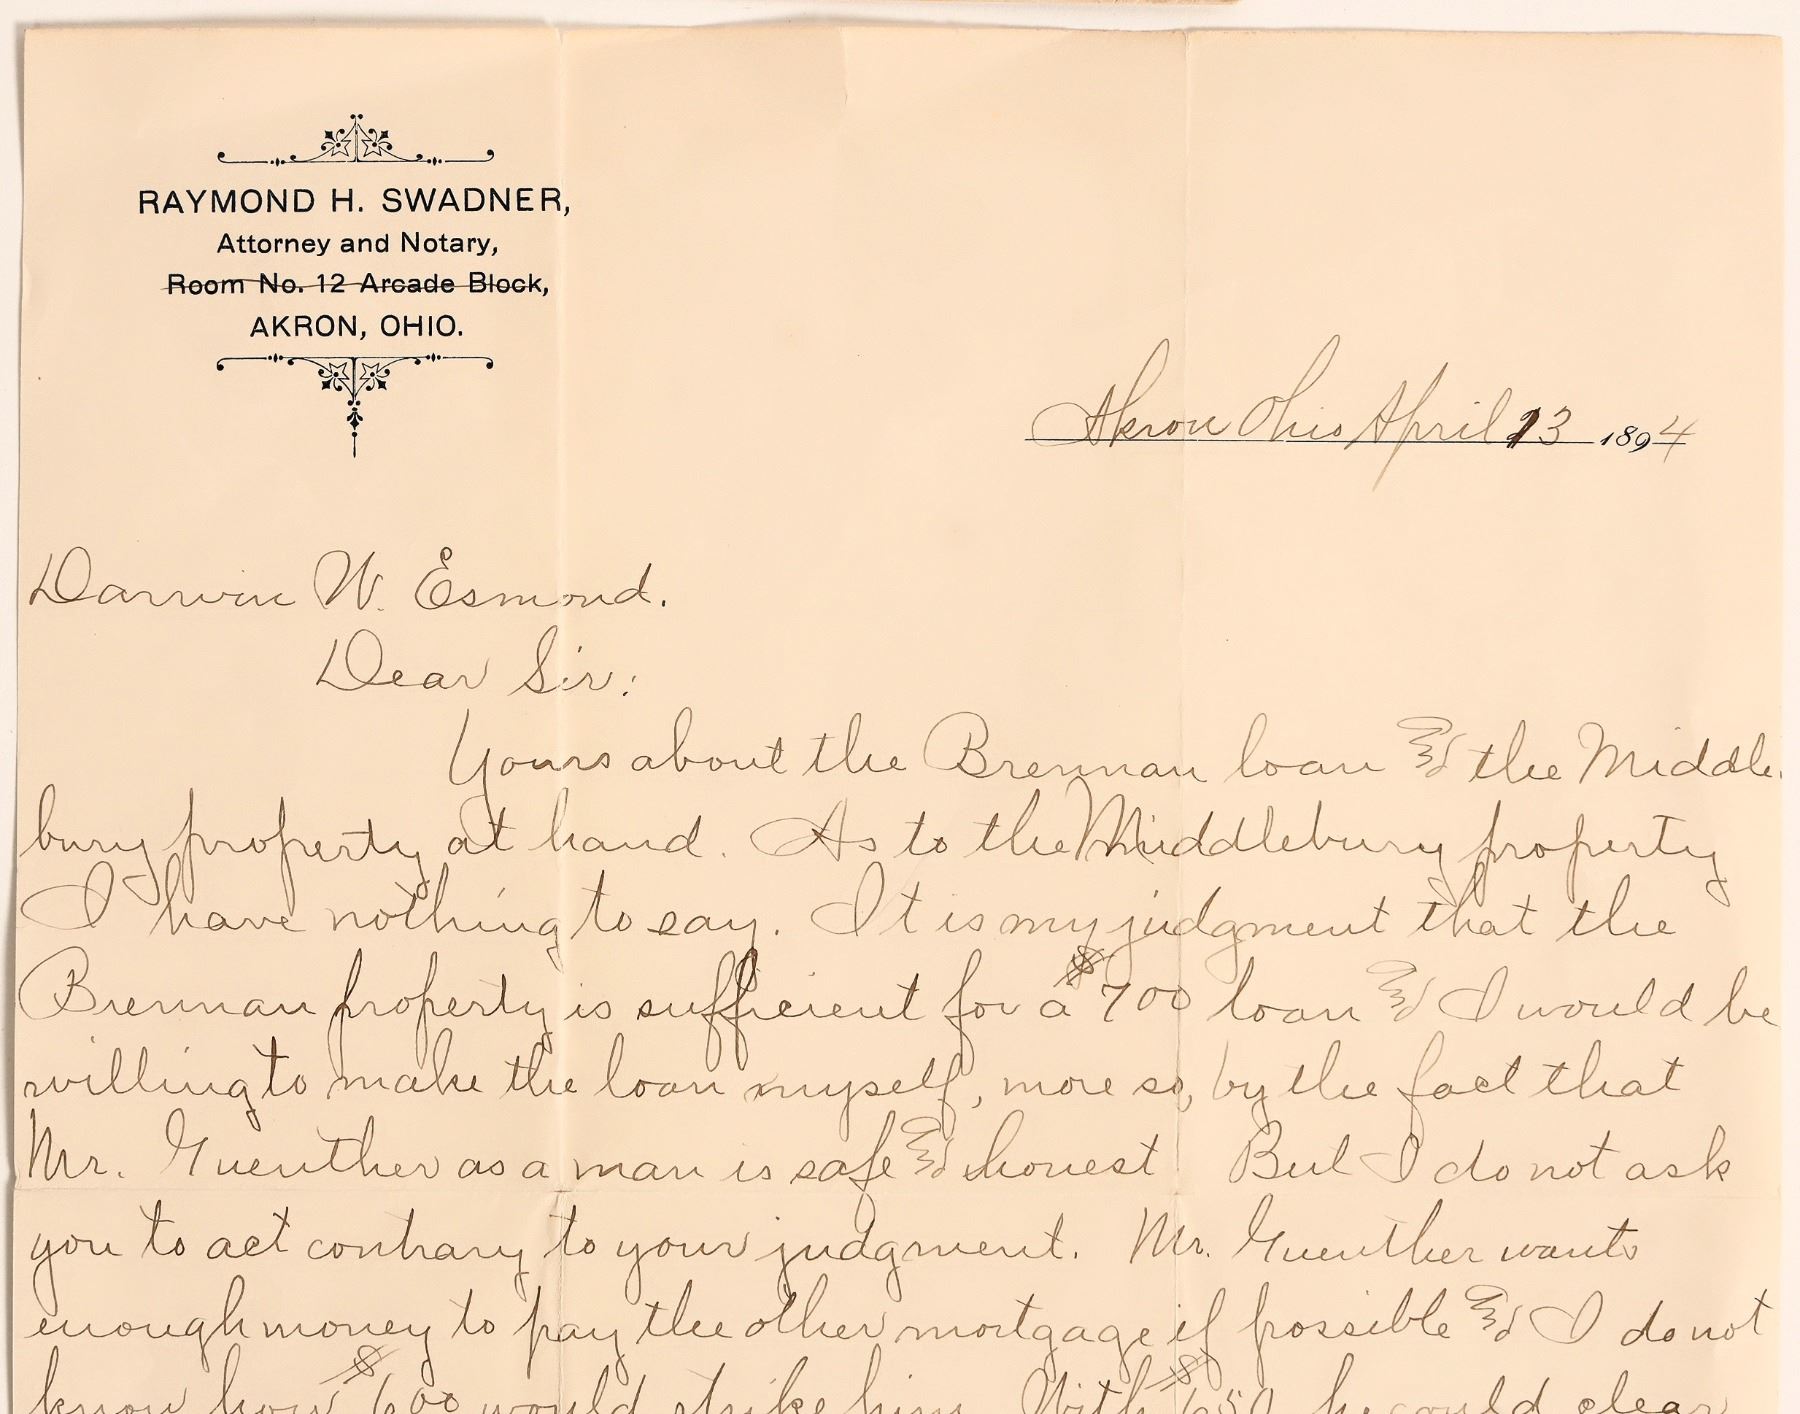 RAYMOND H. SWADNER,
Attorney and Notary,
Room No. 12 Arcade Block,
AKRON, OHIO.
Akron Ohio April 13 1894
Darwin W. Esmond.
Dear Sir:
Yours about the Brennan loan and the Middle-
bury property at hand. As to the Middlebury property
I have nothing to say. It is my judgment that the
Brennan property is sufficient for a $700 loan and I would be
willing to make the loan myself, more so, by the fact that
Mr. Guenther as a man is safe and honest. But I do not ask
you to act contrary to your judgment. Mr. Guenther wants
enough money to pay the other mortgage if possible and I do not
know how $600 would strike him. With $650 he could clear